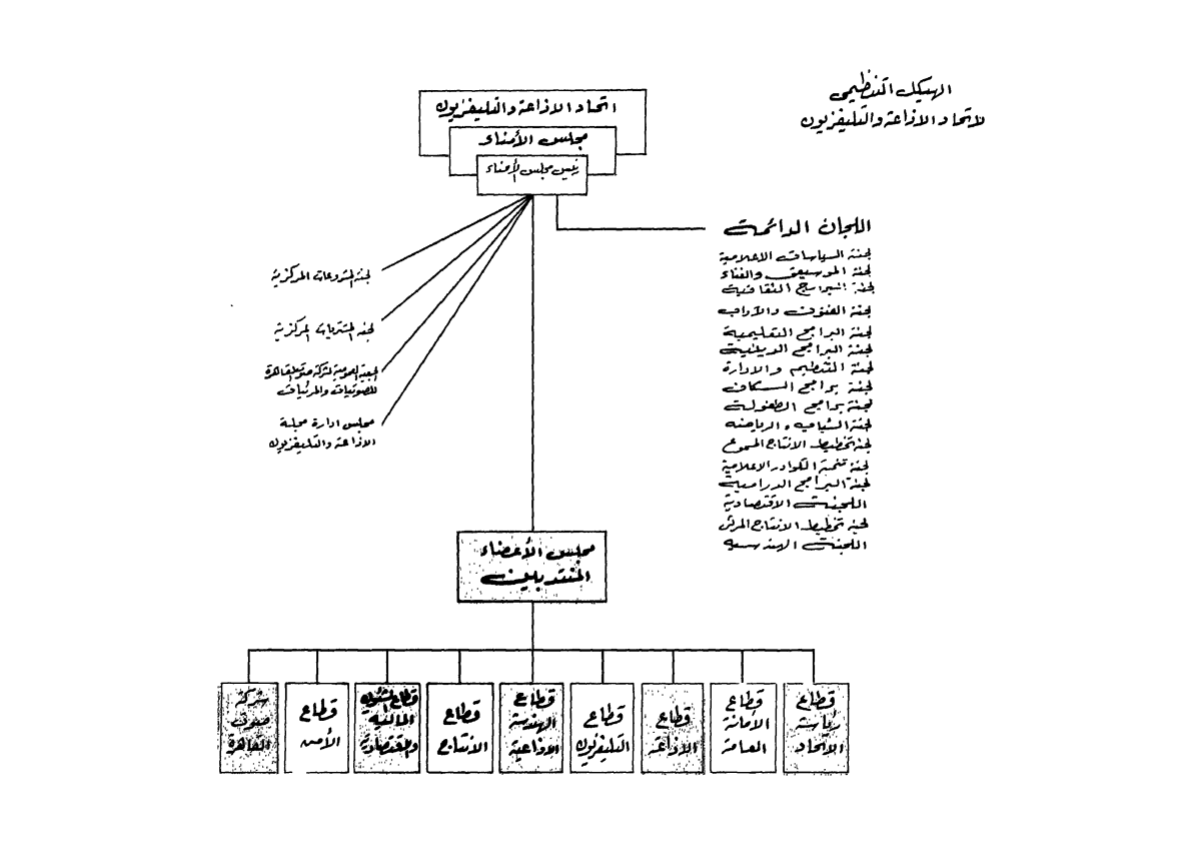 الهيكل التنظيمى
لاتحاد الاذاعة والتليفزيون
اتحاد الاذاعة والتليفزيون
مجلس الأمناء
رئيس مجلس الأمناء
اللجان الدائمة
لجنة السياسات الاعلامية
لجنة الموسيقى والغناء
لجنة البرامج الثقافية
لجنة الفنون والآداب
لجنة البرامج التعليمية
لجنة البرامج الدينية
لجنة التنظيم والادارة
لجنة برامج السكان
لجنة برامج الطفولة
لجنة الشباب والرياضة
لجنة تخطيط الانتاج المسموع
لجنة تنمية الكوادر الاعلامية
لجنة البرامج الدرامية
اللجنة الاقتصادية
لجنة تخطيط الانتاج المرئى
اللجنة الهندسية
لجنة المشروعات المركزية
لجنة المشتريات المركزية
الجمعية العمومية لشركة صوت القاهرة
للصوتيات والمرئيات
مجلس ادارة مجلة
الاذاعة والتليفزيون
مجلس الأعضاء
المنتدبين
قطاع
رئاسة
الاتحاد
قطاع
الأمانة
العامة
قطاع
الاذاعة
قطاع
التليفزيون
قطاع
الهندسة
الاذاعية
قطاع
الانتاج
قطاع الشئون
المالية
والاقتصادية
قطاع
الأمن
شركة
صوت
القاهرة